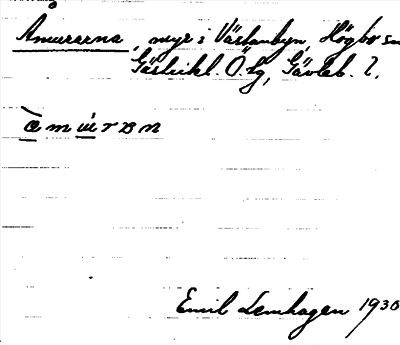 Åmurarna, myr i Västanbyn, Högbo sn
Gästrikl. Ö. tg, Gävleb. l.
Emil Lemhagen 1930